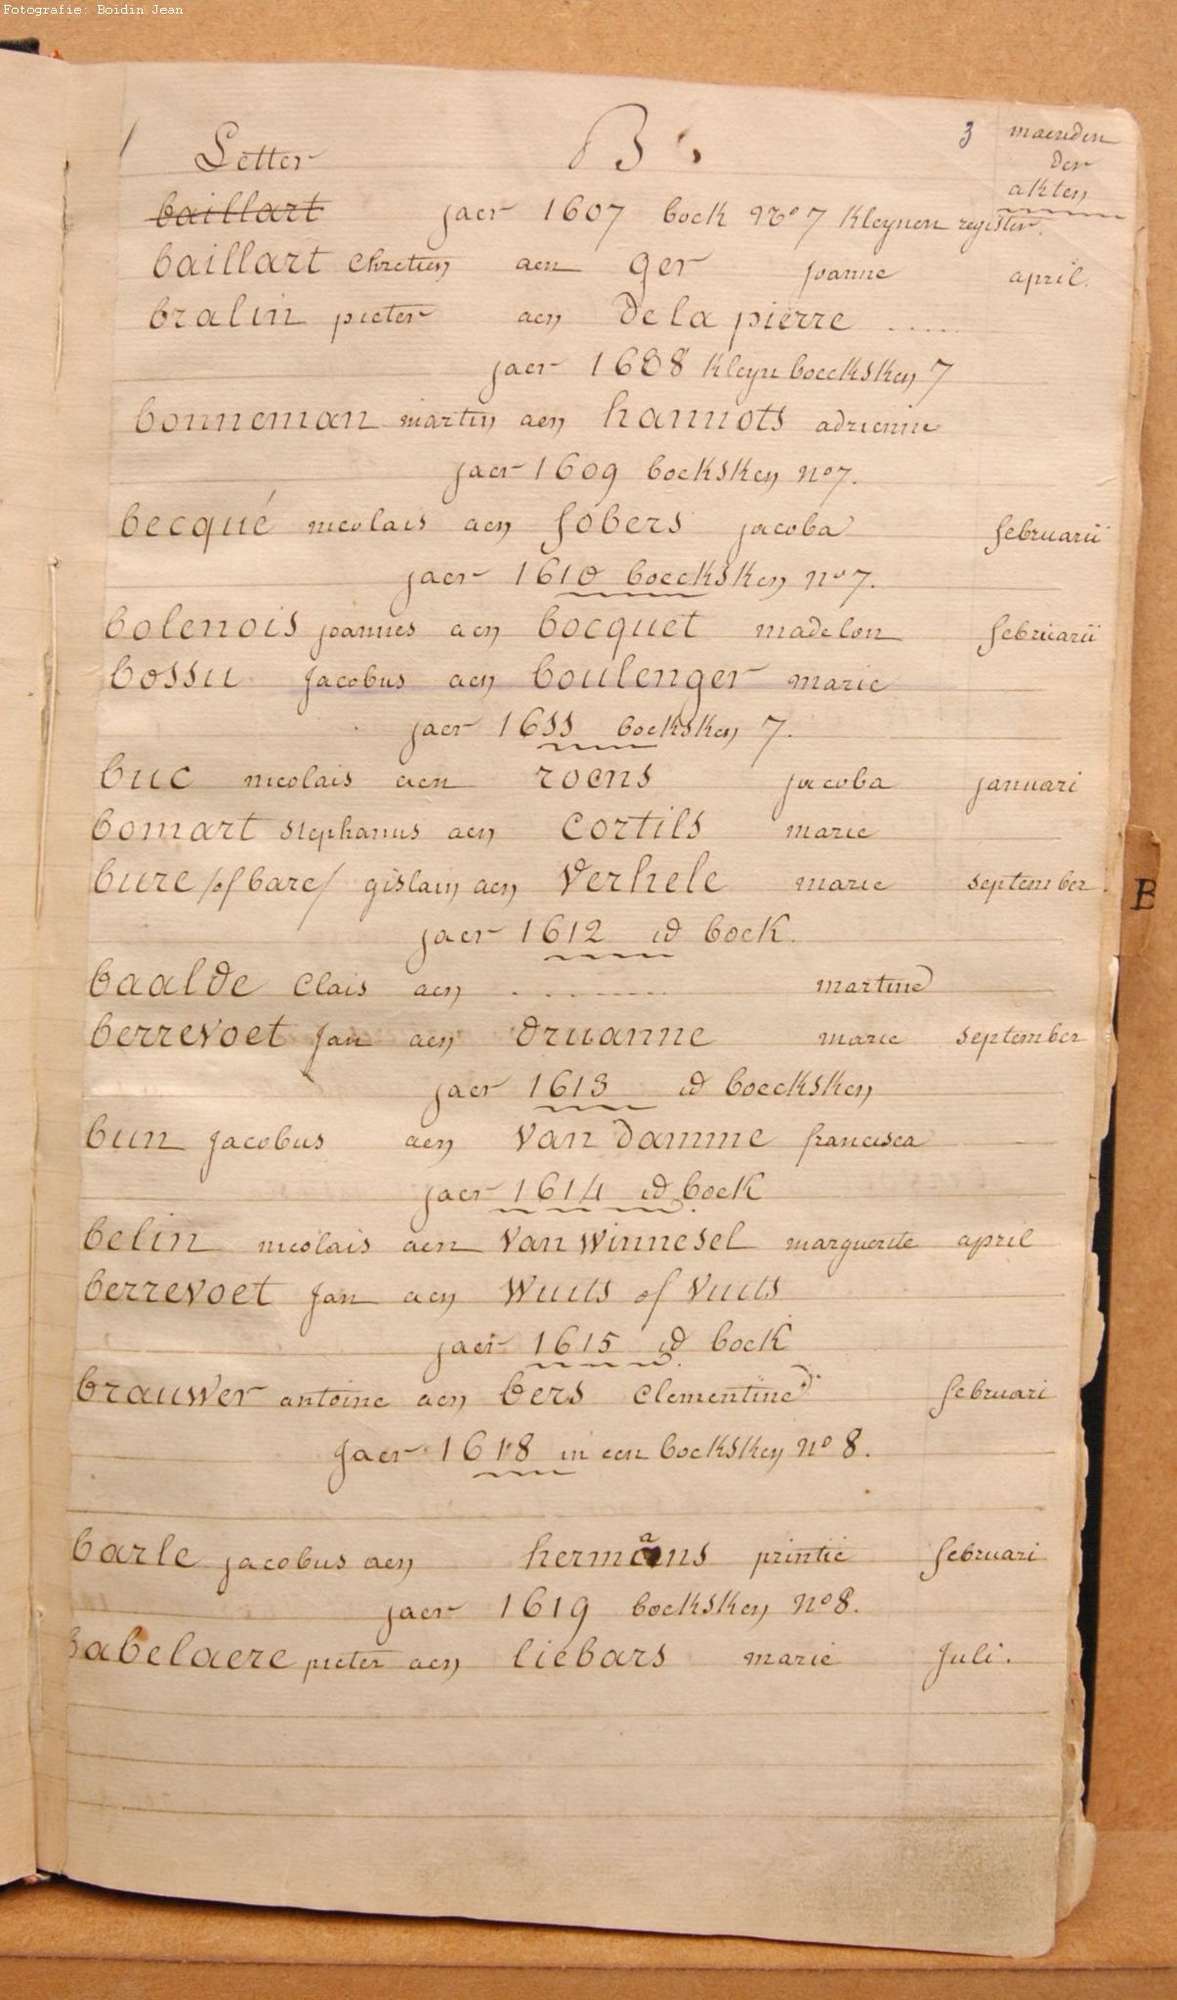 Fotografie: Boidin Jean
Letter B. 3 maenden
der
akten
baillart jaer 1607 boek No 7 kleynen register.
baillart chretien aen ger joanne april.
bralin pieter aen de la pierre .....
jaer 1608 kleyn boecksken 7
bonneman martin aen hannots adrienne
jaer 1609 boeksken no 7.
becqué nicolais aen fobers jacoba februarii
jaer 1610 boecksken no 7.
bolenois joannes aen bocquet madelon februarii
bossu jacobus aen boulenger marie
jaer 1611 boeksken 7.
buc nicolais aen roens jacoba januari
bomart stephanus aen cortils marie
bure /of bare/ gislain aen verhele marie september.
jaer 1612 id boek.
baalde Clais aen .......... martine
berrevoet jan aen druanne marie september
jaer 1613 id boecksken
bun jacobus aen van damme francisca
jaer 1614 id boek
belin nicolais aen van winnesel marguerite april
berrevoet jan aen wuits of vuits
jaer 1615 id boek
brauwer antoine aen bers clementine februari
jaer 1618 in een boeksken no 8.
barle jacobus aen hermans printie februari
jaer 1619 boeksken No 8.
babelaere pieter aen liebars marie Juli.
B